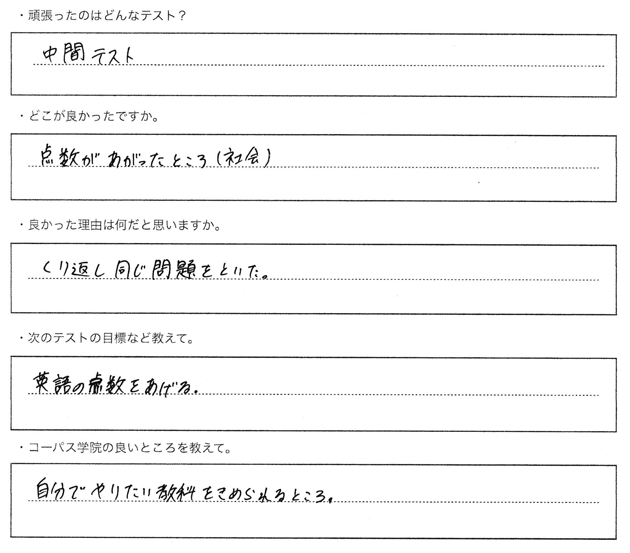 ・頑張ったのはどんなテスト？
中間テスト
・どこが良かったですか。
点数があがったところ(社会)
・良かった理由は何だと思いますか。
くり返し同じ問題をといた。
・次のテストの目標など教えて。
英語の点数をあげる。
・コーパス学院の良いところを教えて。
自分でやりたい教科をきめられるところ。